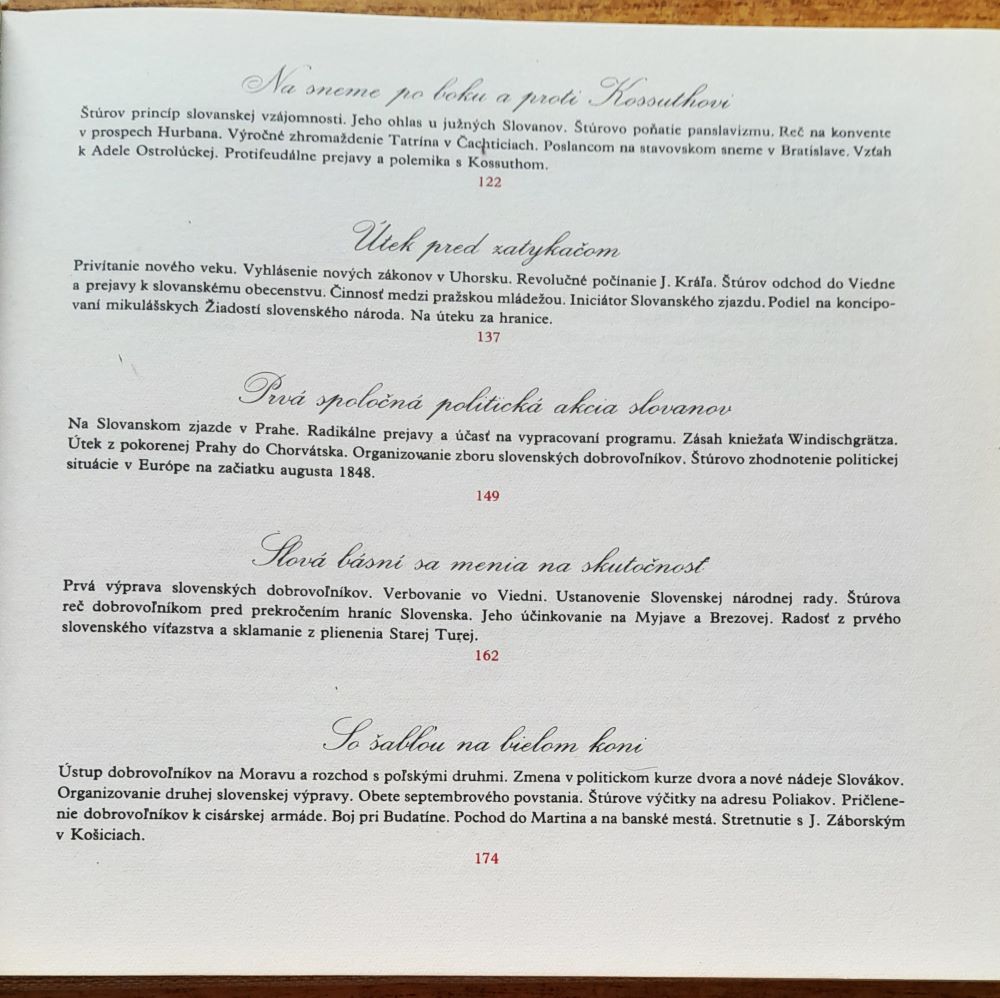 Na sneme po boku a proti Kossuthovi
Štúrov princíp slovanskej vzájomnosti. Jeho ohlas u južných Slovanov. Štúrovo poňatie panslavizmu. Reč na konvente
v prospech Hurbana. Výročné zhromaždenie Tatrína v Čachticiach. Poslancom na stavovskom sneme v Bratislave. Vzťah
k Adele Ostrolúckej. Protifeudálne prejavy a polemika s Kossuthom.
122
Útek pred zatykačom
Privítanie nového veku. Vyhlásenie nových zákonov v Uhorsku. Revolučné počínanie J. Kráľa. Štúrov odchod do Viedne
a prejavy k slovanskému obecenstvu. Činnosť medzi pražskou mládežou. Iniciátor Slovanského zjazdu. Podiel na koncipo-
vaní mikulášskych Žiadostí slovenského národa. Na úteku za hranice.
137
Prvá spoločná politická akcia slovanov
Na Slovanskom zjazde v Prahe. Radikálne prejavy a účasť na vypracovaní programu. Zásah kniežaťa Windischgrätza.
Útek z pokorenej Prahy do Chorvátska. Organizovanie zboru slovenských dobrovoľníkov. Štúrovo zhodnotenie politickej
situácie v Európe na začiatku augusta 1848.
149
Slová básní sa menia na skutočnosť
Prvá výprava slovenských dobrovoľníkov. Verbovanie vo Viedni. Ustanovenie Slovenskej národnej rady. Štúrova
reč dobrovoľníkom pred prekročením hraníc Slovenska. Jeho účinkovanie na Myjave a Brezovej. Radosť z prvého
slovenského víťazstva a sklamanie z plienenia Starej Turej.
162
So šabľou na bielom koni
Ústup dobrovoľníkov na Moravu a rozchod s poľskými druhmi. Zmena v politickom kurze dvora a nové nádeje Slovákov.
Organizovanie druhej slovenskej výpravy. Obete septembrového povstania. Štúrove výčitky na adresu Poliakov. Pričlene-
nie dobrovoľníkov k cisárskej armáde. Boj pri Budatíne. Pochod do Martina a na banské mestá. Stretnutie s J. Záborským
v Košiciach.
174